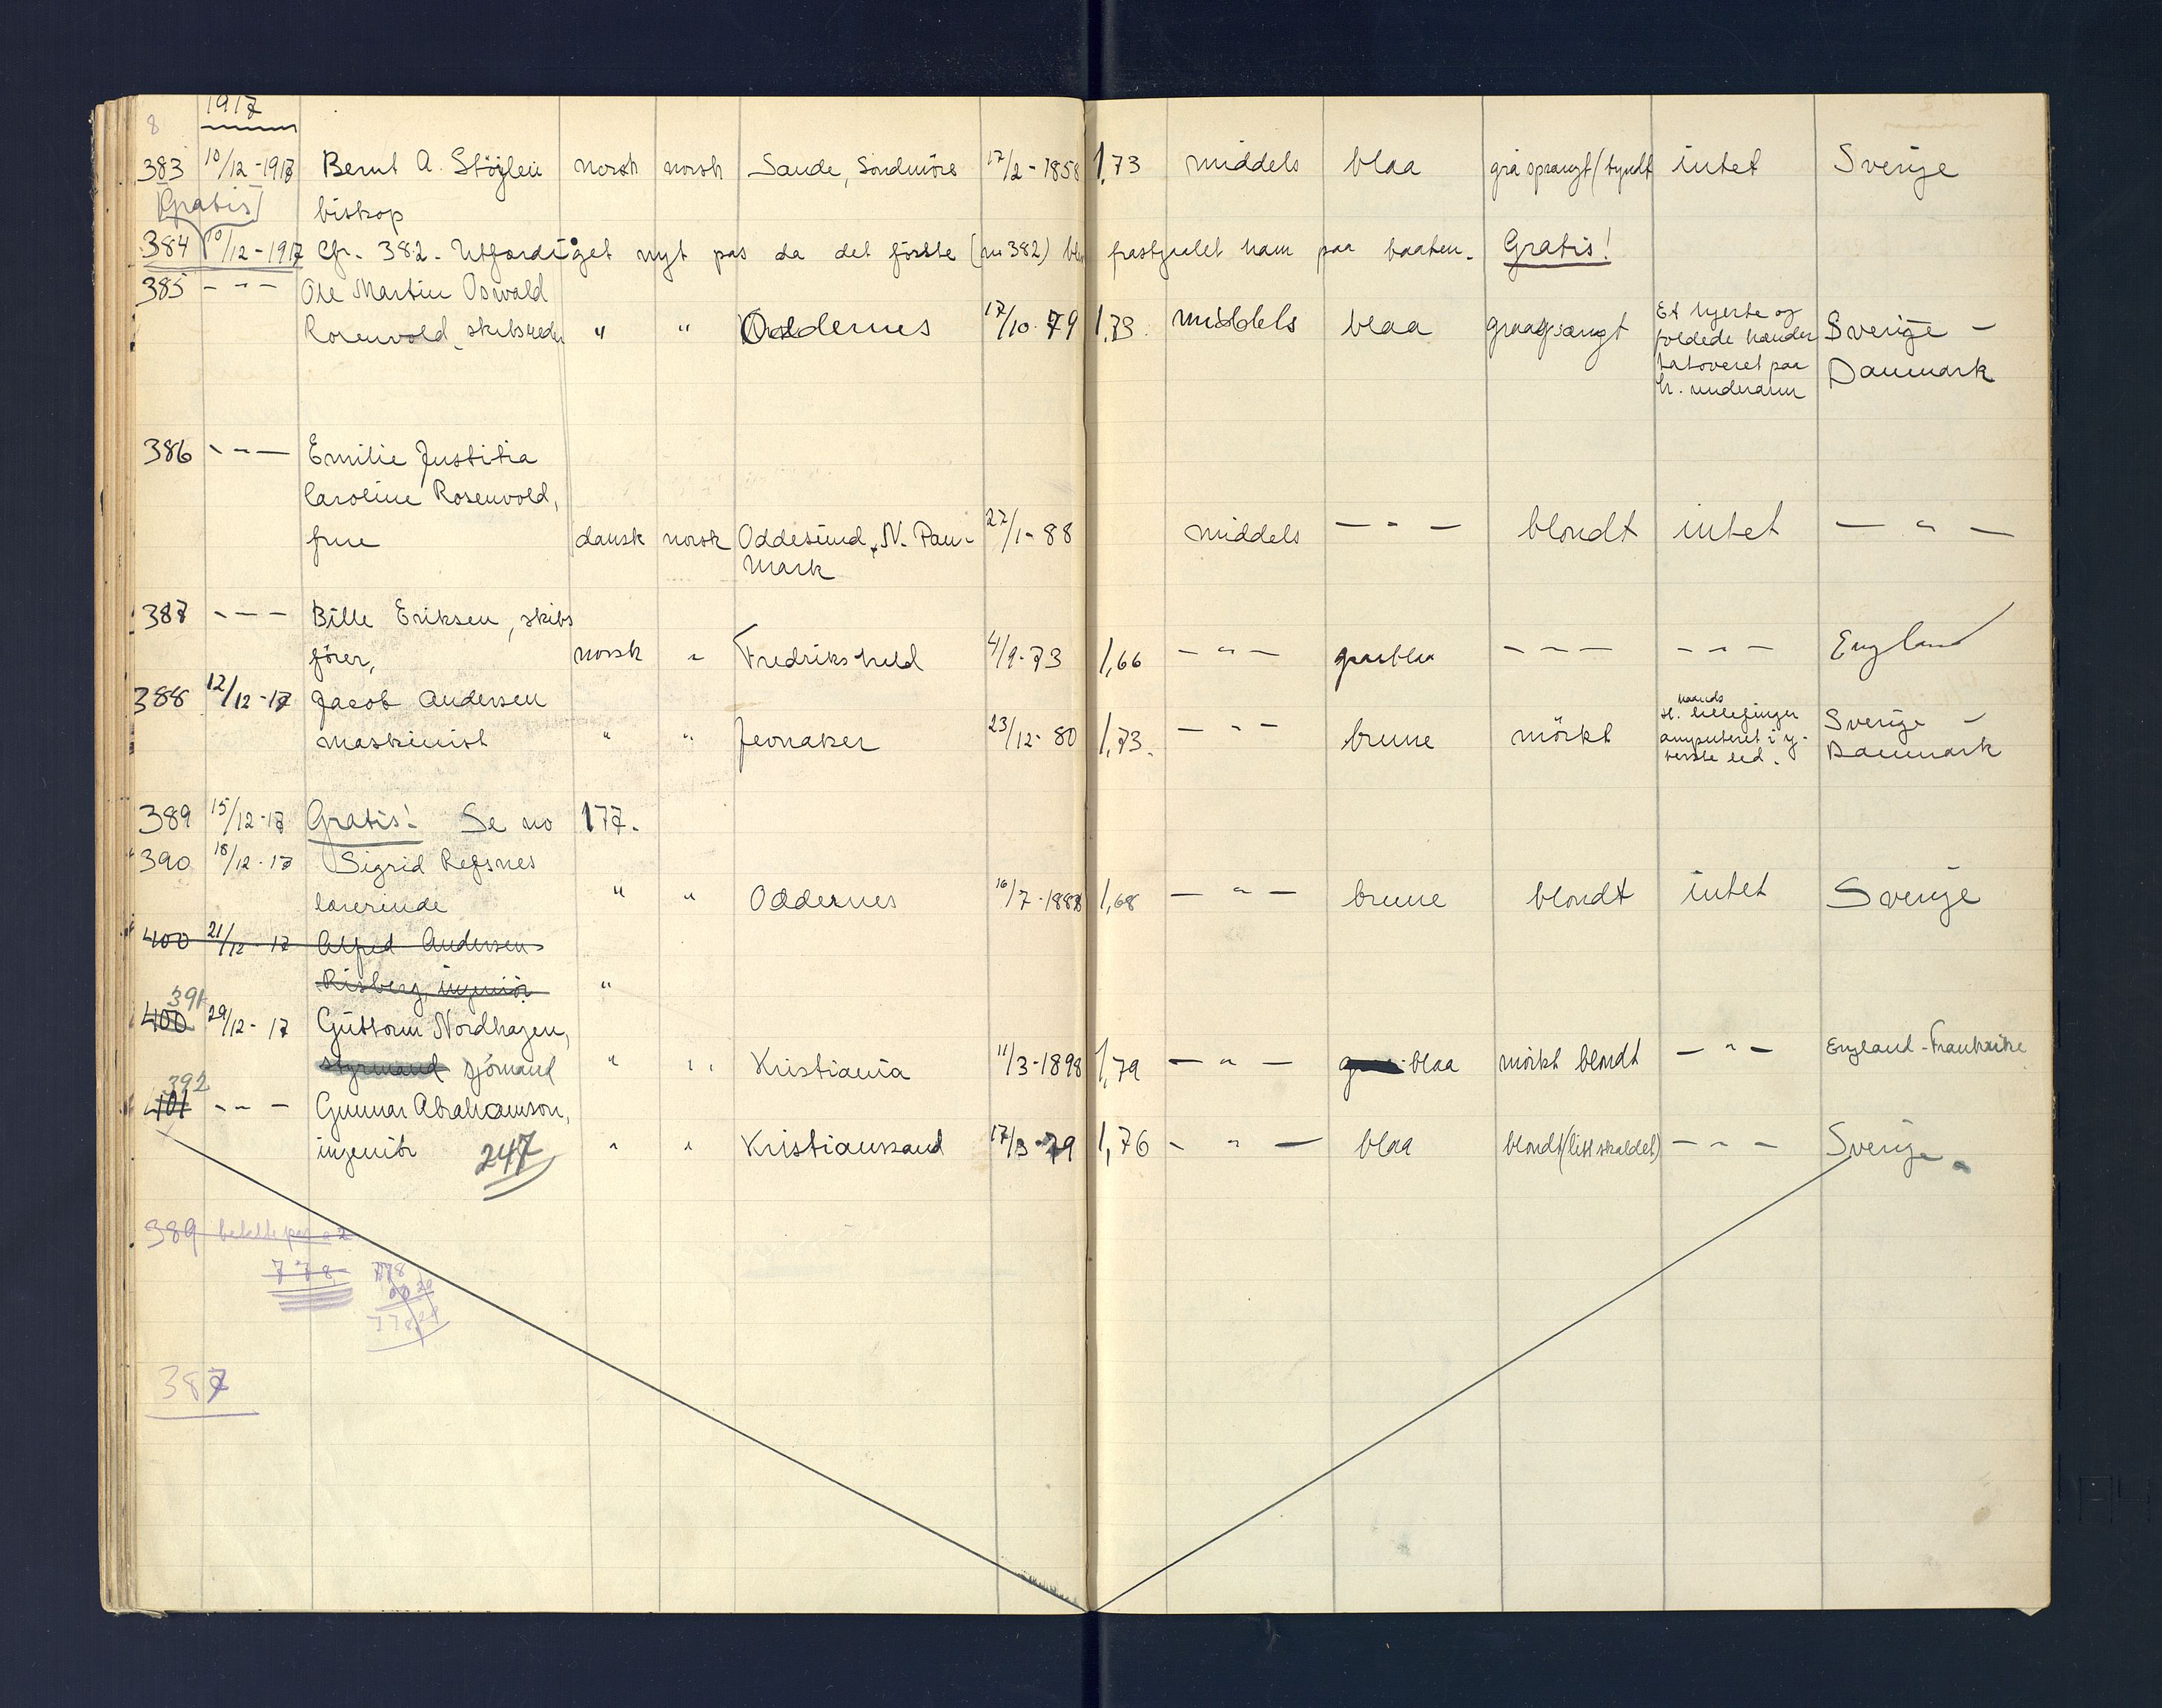 8 1917
383 10/12-1917 Bernt A. Støylen norsk norsk Sande, Söndmöre 17/2-1858 1,73 middels blaa gråsprængt (tyndt intet Sverige
[Gratis] biskop
384 10/12-1917 Cfr. 382. Utfærdiget nyt pas da det förste (nr 382) blev frastjaalet ham paa baaten. Gratis!
385 - " - Ole Martin Oswald
Rosenvold, skibsreder " " Oddernes 17/10-79 1,73. middels blaa graasprængt Et hjerte og Sverige -
foldede hænder
tatoveret paa Danmark
h. underarm
386 - " - Emilie Justitia
Caroline Rosenvold,
frue dansk norsk Oddesund, N. Dan- 27/1-88 middels - " - blondt intet - " -
mark
387 - " - Bille Eriksen, skibs
förer, norsk " Fredrikshald 4/9-73 1,66 - " - graablaa - " - - " - England
388 12/12-17 Jacob Andersen haands
maskinist " " Jevnaker 23/12-80 1,73. - " - brune mörkt v. lillefinger Sverige -
amputeret i y- Danmark
terste led.
389 15/12-17 Gratis! Se no 177.
390 18/12-17 Sigrid Refsnes
lærerinde " " Oddernes 16/7-1888 1,68 - " - brune blondt intet Sverige
400 21/12-17 Alfred Andersen
Risberg, ingeniör "
391
400 29/12-17 Guttorm Nordhagen,
styrmand sjömand " " Kristiania 11/3-1898 1,79 - " - blaa mörkt blondt - " - England-Frankrike
392
401 - " - Gunnar Abrahamson,
ingeniör 247 " " Kristianssand 17/3-79 1,76 - " - blaa blondt (litt skaldet) - " - Sverige
389
778 778
387